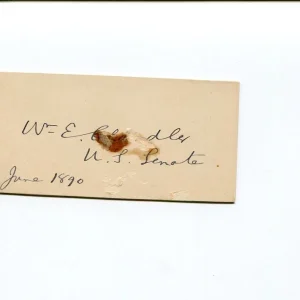 Wm E. Chandler
U.S. Senate.
June 1890